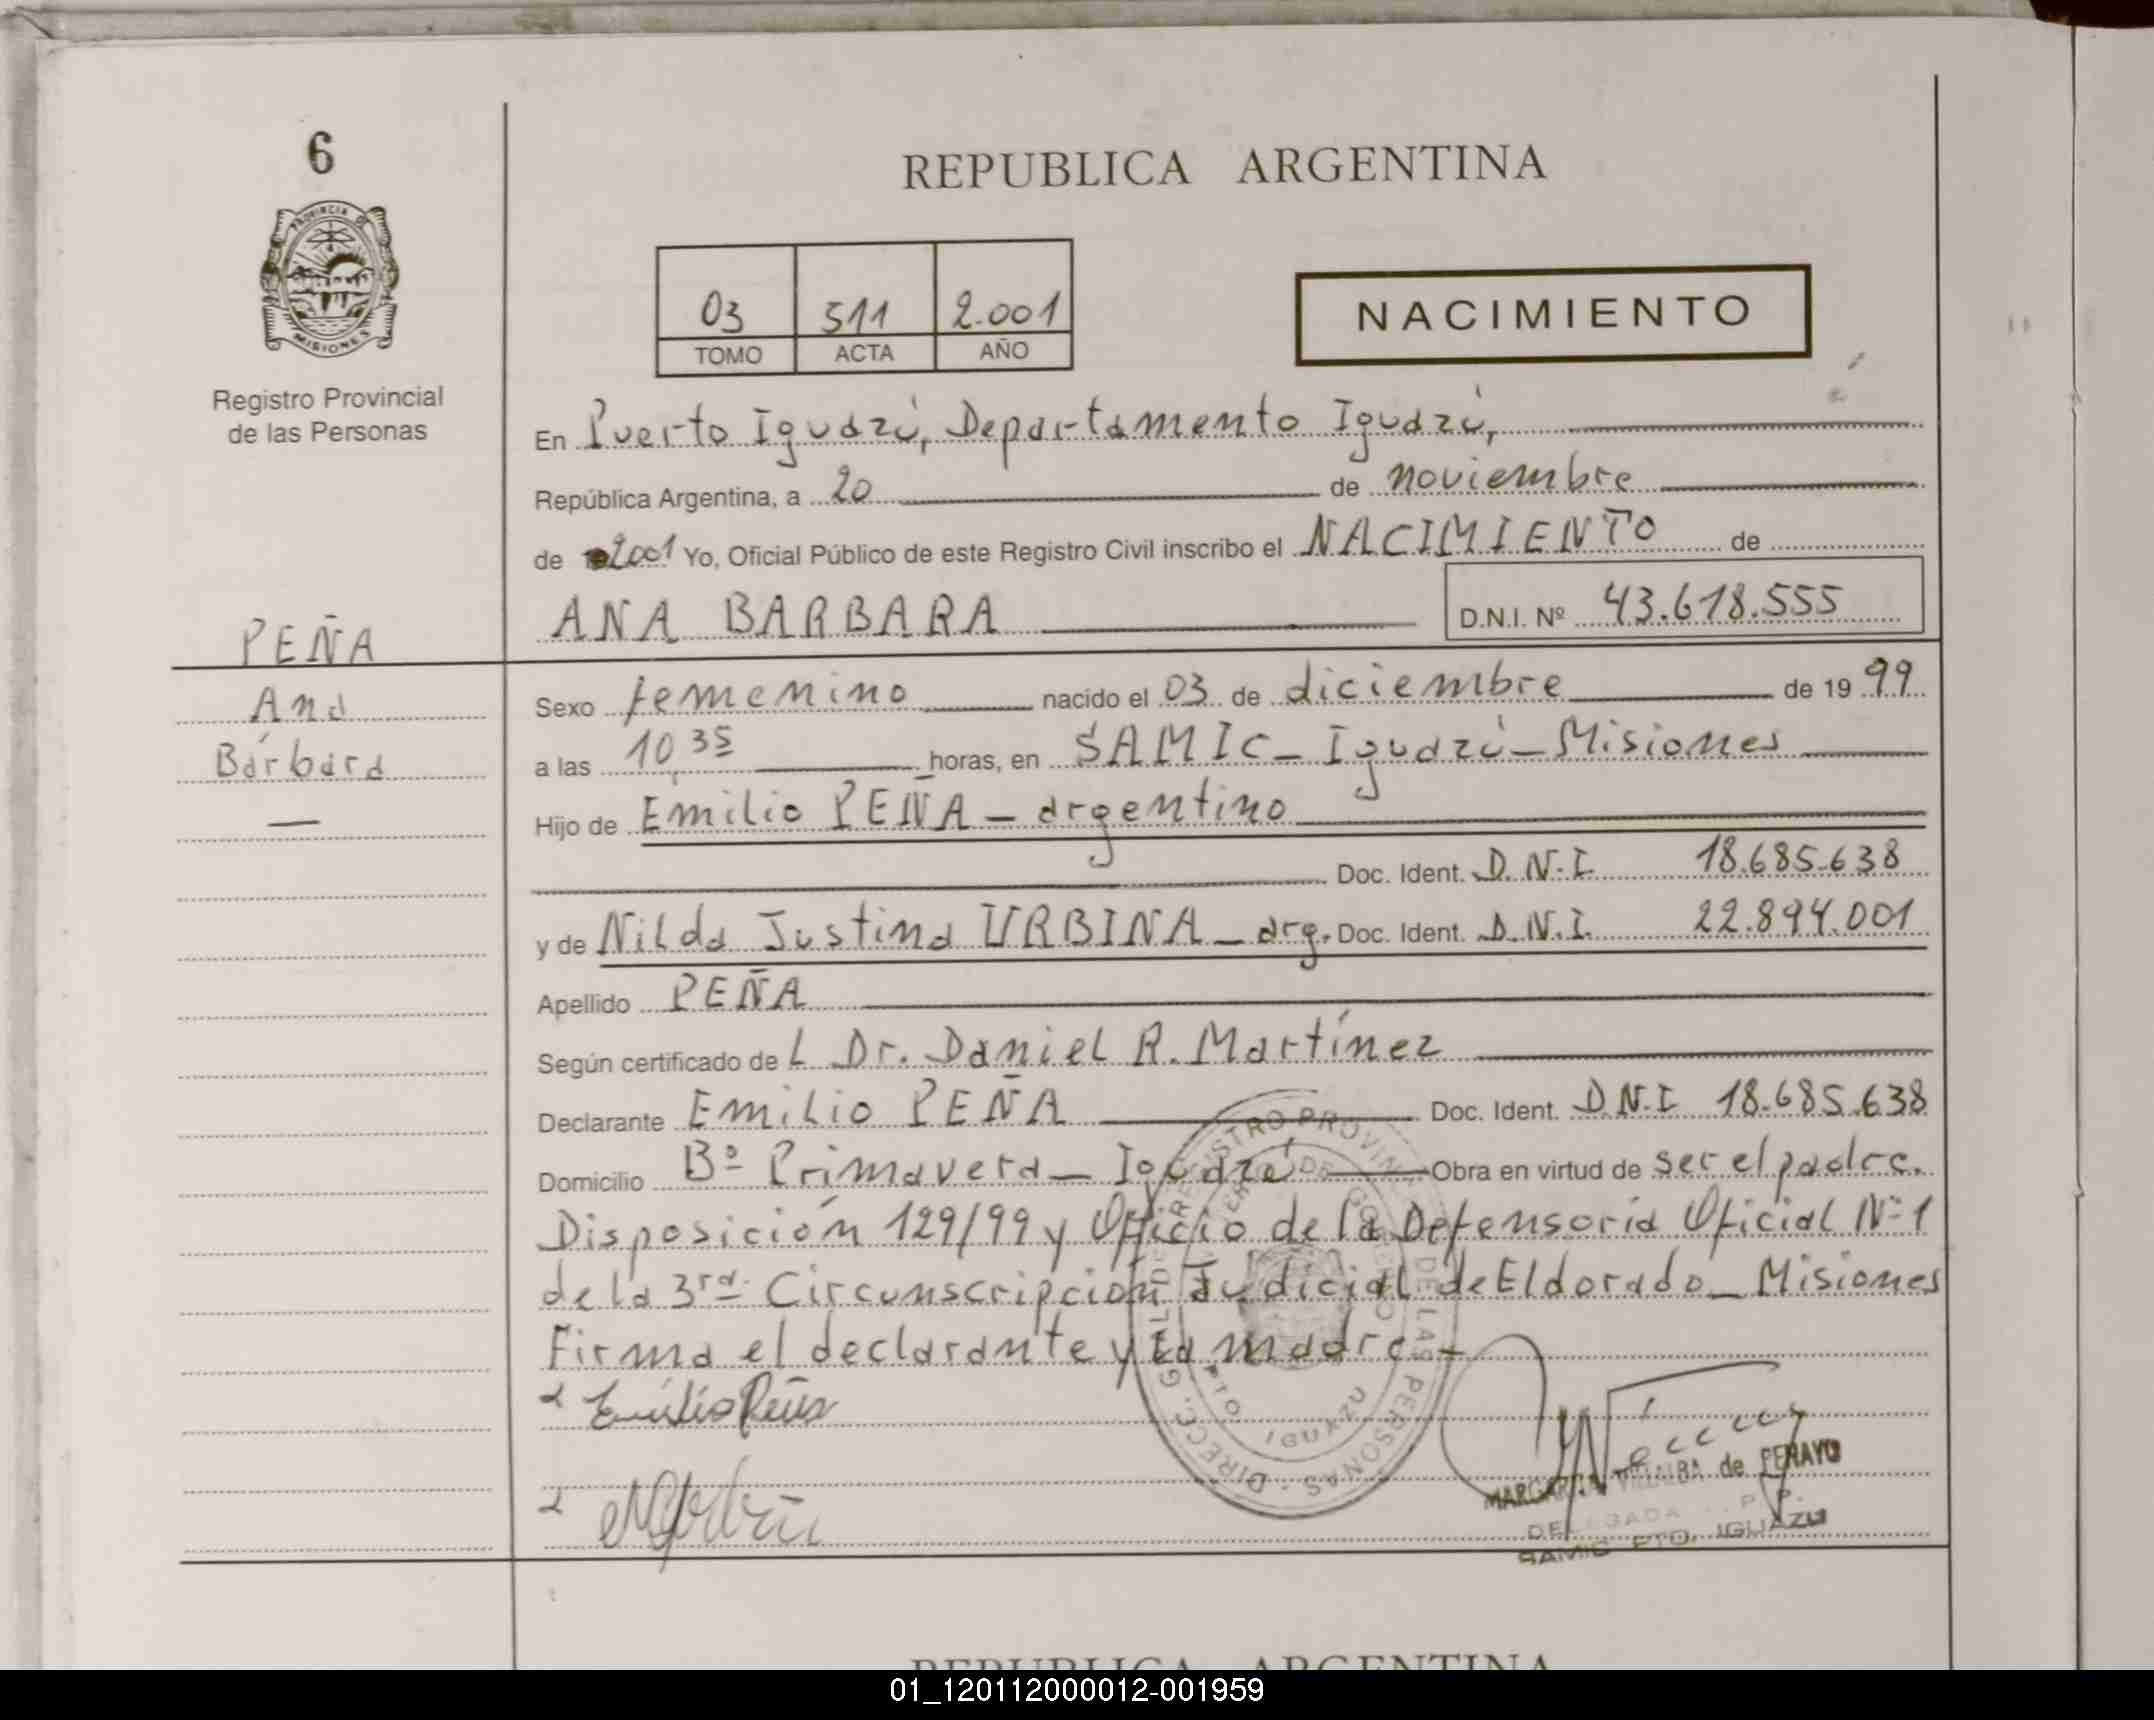 6
PROVINCIA DE
MISIONES
Registro Provincial
de las Personas
REPUBLICA ARGENTINA
03 511 2.001
TOMO ACTA AÑO
NACIMIENTO
En Puerto Iguazú, Departamento Iguazú,
República Argentina, a 20 de noviembre
de 2001 Yo, Oficial Público de este Registro Civil inscribo el NACIMIENTO de
PEÑA
ANA BARBARA D.N.I. Nº 43.618.555
Ana
Sexo femenino nacido el 03 de diciembre de 19 99
Bárbara
a las 10 35 horas, en SAMIC - Iguazú - Misiones
Hijo de Emilio PEÑA - argentino
Doc. Ident. D.N.I. 18.685.638
y de Nilda Justina URBINA - arg. Doc. Ident. D.N.I. 22.894.001
Apellido PEÑA
Según certificado de L Dr. Daniel R. Martínez
Declarante Emilio PEÑA Doc. Ident. D.N.I 18.685.638
Domicilio Bº Primavera - Iguazú Obra en virtud de ser el padre.
Disposición 129/99 y Oficio de la Defensoría Oficial Nº 1
de la 3ra. Circunscripción Judicial de Eldorado - Misiones
Firma el declarante y la madre -
Emilio Peña
DIRECC. GRAL DE REGISTRO PROVINCIAL DE LAS PERSONAS
PTO IGUAZU
MARGARITA VILLALBA de PERAYO
DELEGADA R. P. P.
SAMIC PTO. IGUAZU
REPUBLICA ARGENTINA
01_120112000012-001959